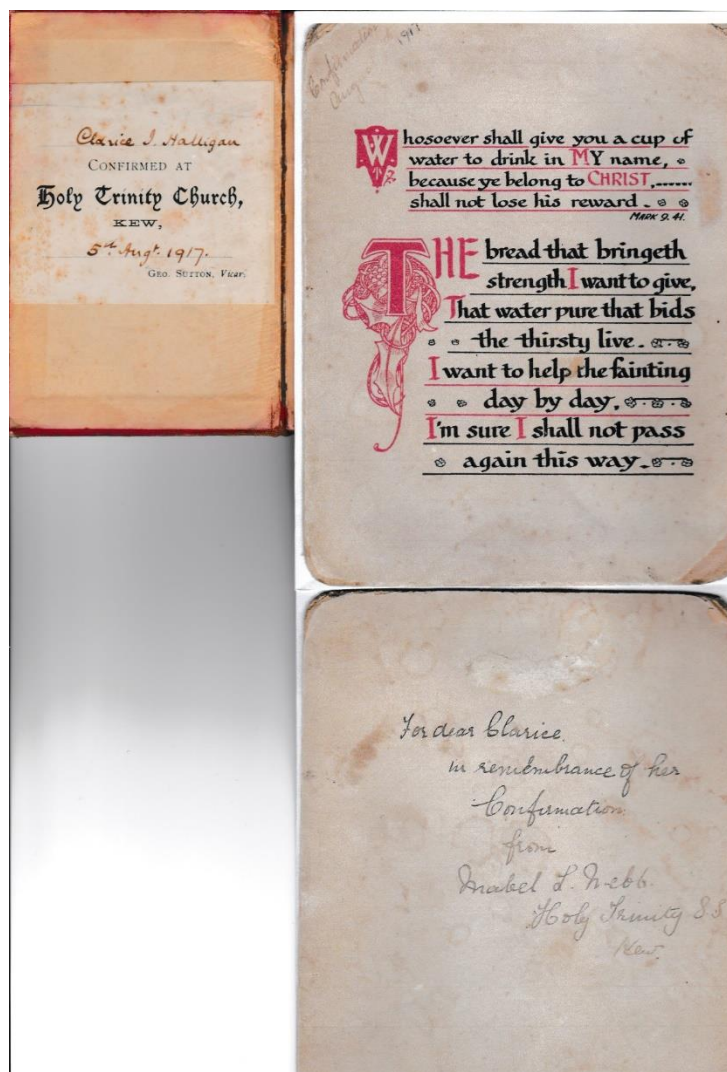 Clarice I. Halligan
CONFIRMED AT
Holy Trinity Church,
KEW,
5th Augt. 1917.
GEO. SUTTON, Vicar.
Confirmation
Aug 1917
Whosoever shall give you a cup of
water to drink in MY name,
because ye belong to CHRIST,.......
shall not lose his reward.
MARK 9. 41.
THE bread that bringeth
strength I want to give,
That water pure that bids
the thirsty live.
I want to help the fainting
day by day,
I'm sure I shall not pass
again this way.
For dear Clarice
in remembrance of her
Confirmation
from
Mabel L. Webb.
Holy Trinity S.S
Kew.